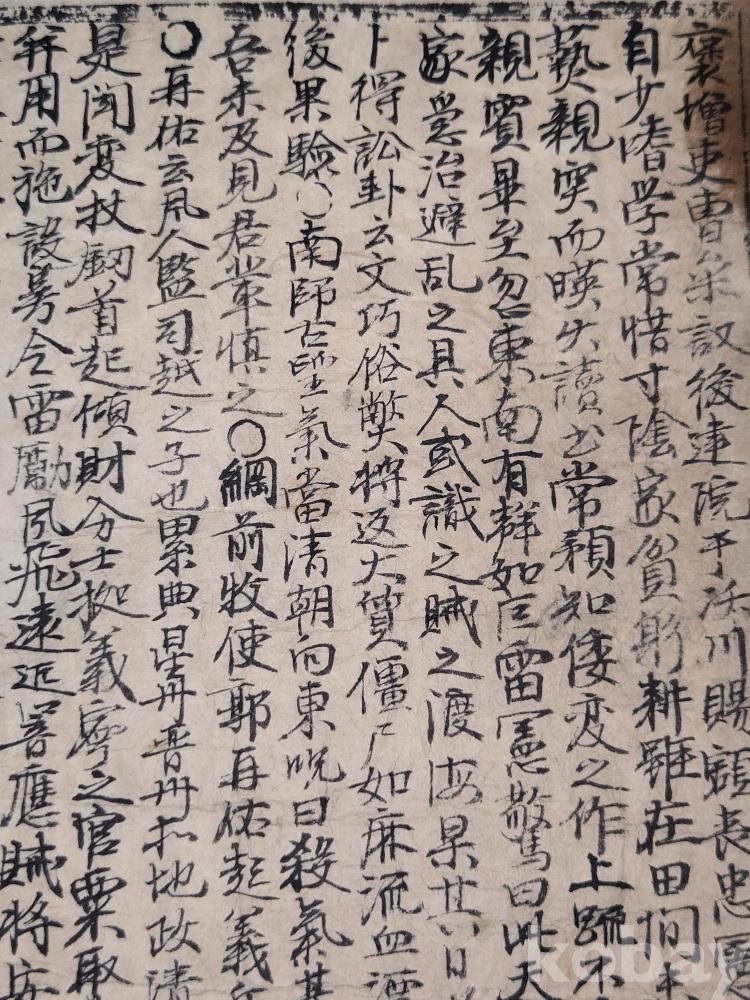 褒增吏曹參議後建院于沃川賜額表忠
自少嗜学常惜寸陰家貧躬耕雖在田間手
藝親突而暎火讀书常預知倭变之作上疏不
親賓畢至忽東南有聲如巨雷憲驚曰此天
家急治避乱之具人或識之賊之渡海果其日
卜得訟卦云文巧俗弊將返大質僵尸如麻流血
後果驗○南師古望氣當清朝向東呪曰殺氣甚
吾未及見君輩慎之○綱前牧使郭再佑起義兵
○再佑玄风人監司越之子也累典星州晋州扣地政清
是闻变杖劒首起傾財分士拠義寧之官粟取
并用而施設号令雷勵風飛遠近響應賊將安
kobay